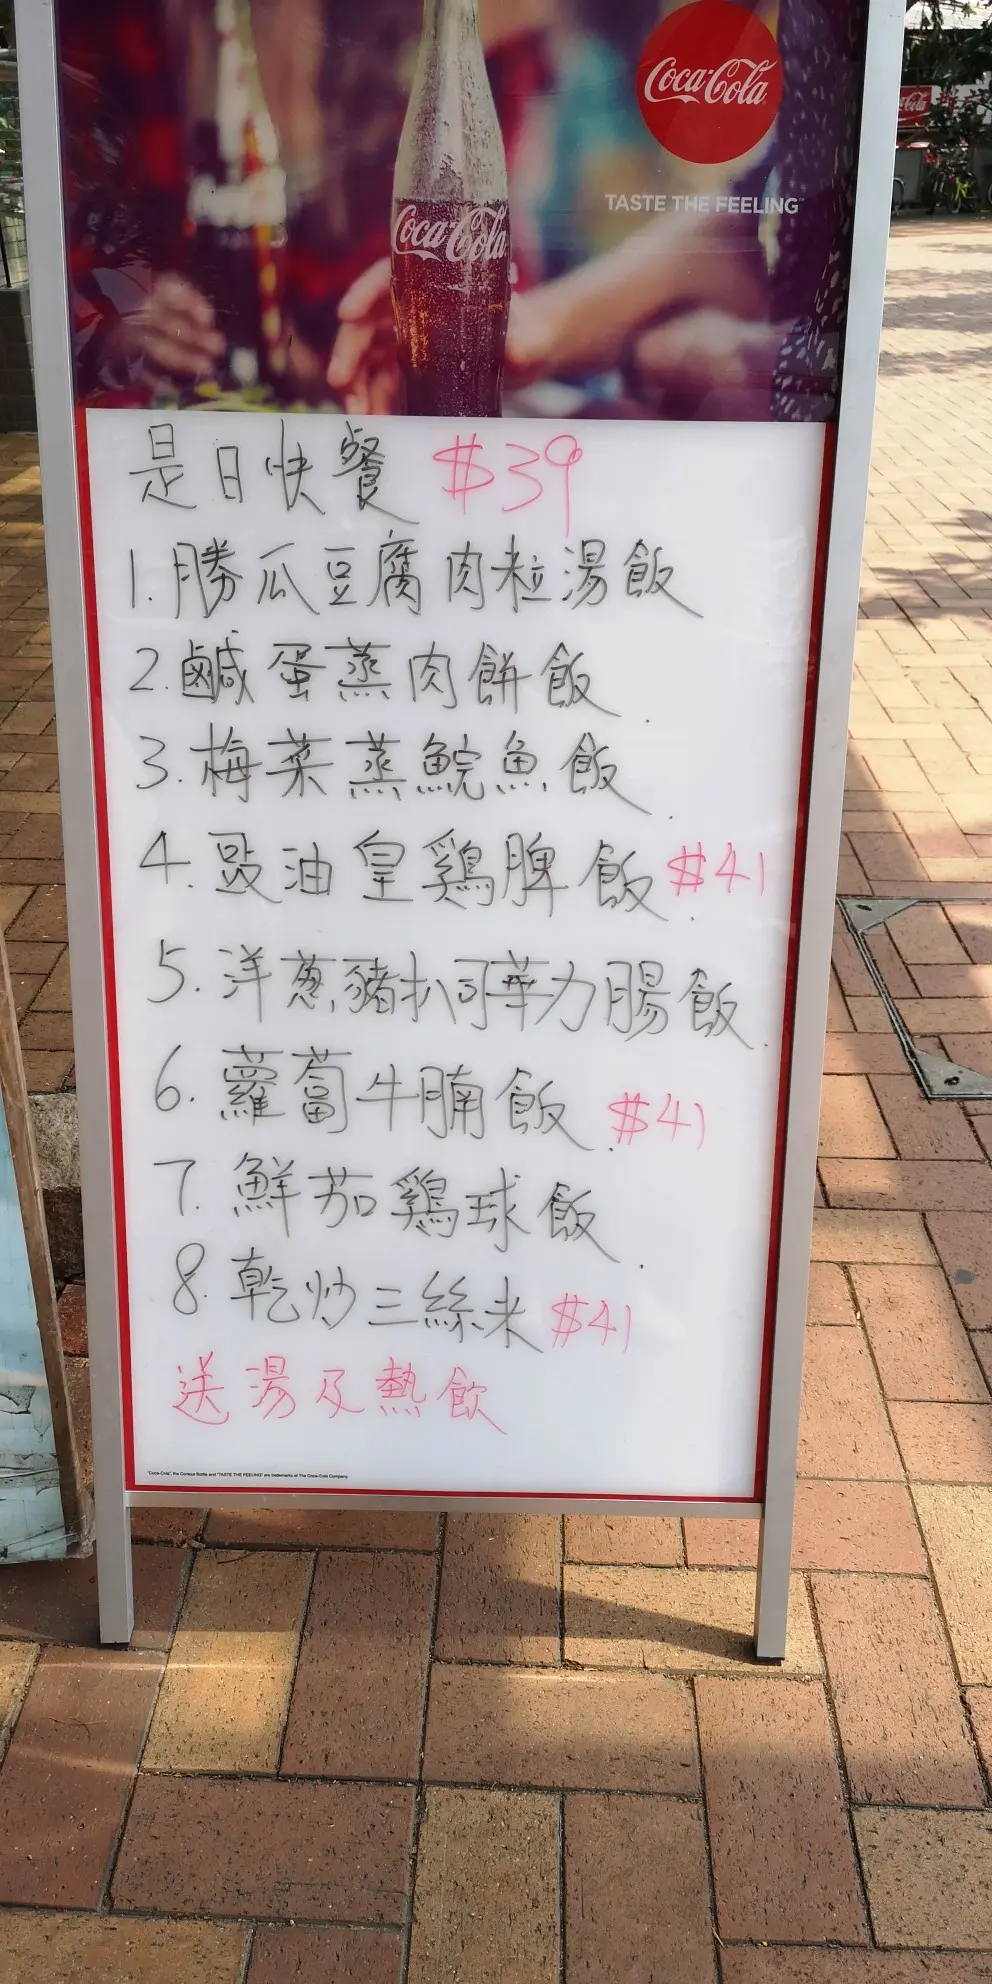 Coca-Cola
TASTE THE FEELING™
Coca-Cola
是日快餐 $39
1. 勝瓜豆腐肉粒湯飯
2. 鹹蛋蒸肉餅飯
3. 梅菜蒸鯇魚飯
4. 豉油皇鷄脾飯 $41
5. 洋葱豬扒哥華力腸飯
6. 蘿蔔牛腩飯 $41
7. 鮮茄鷄球飯
8. 乾炒三絲米 $41
送湯及熱飲
"Coca-Cola", the Contour Bottle and "TASTE THE FEELING" are trademarks of The Coca-Cola Company.